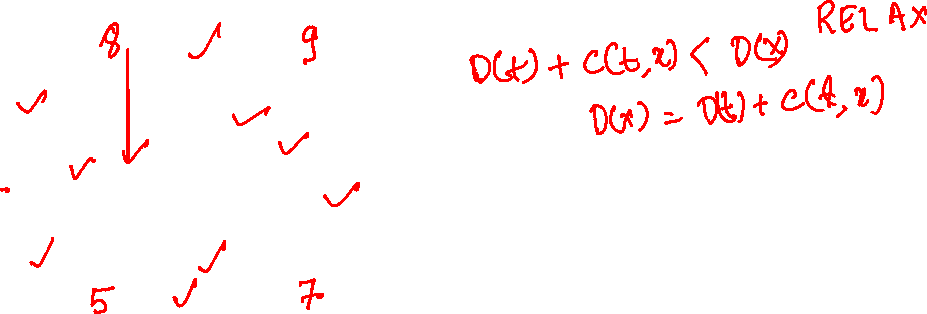 8 9
RELAX
D(t) + C(t,x) < D(x)
D(x) = D(t) + C(t,x)
5 7